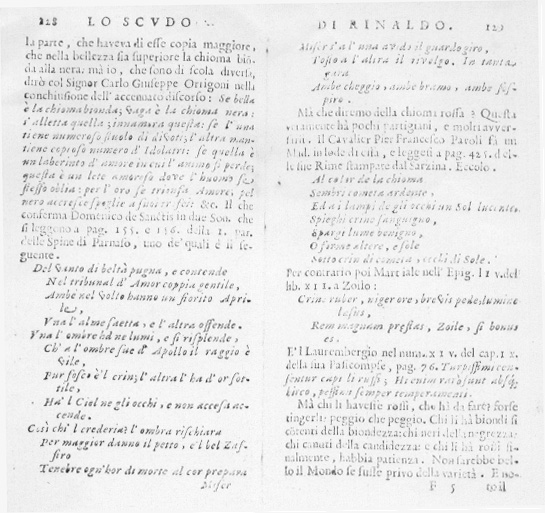 128 LO SCVDO
la parte, che haveva di esse copia maggiore,
che nella bellezza sia superiore la chioma bion
da alla nera: mà io, che sono di scola diversa,
dirò col Signor Carlo Giuseppe Orrigoni nella
conchiusione dell'accennato discorso: Se bella
è la chioma bionda; vaga è la chioma nera:
s'alletta quella; innamora questa: se l'una
tiene numeroso stuolo di divoti; l'altra man-
tiene copioso numero d'Idolatri: se quella è
un laberinto d'amore in cui l'animo si perde;
questa è un lete amoroso dove l'huomo se
stesso oblia: per l'oro se trionfa Amore, pel
nero accresce spoglie a suoi trofei: &c. Il che
conferma Domenico de Sanctis in due Son. che
si leggono a pag. 155. e 156. dalla 1. par.
delle Spine di Parnaso, uno de' quali è il se-
guente.
Del vanto di beltà pugna, e contende
Nel tribunal d'Amor coppia gentile,
Ambe nel volto hanno un fiorito Apri-
le,
Vna l'alme saetta, e l'altra offende.
Vna l'ombre hà ne lumi, e si risplende,
Ch'a l'ombre sue d'Apollo il raggio è
vile,
Pur fosco è'l crin; l'altra l'ha d'or sot-
tile,
Hà'l Ciel ne gli occhi, e non accesa ac-
cende.
Così chi'l crederia? l'ombra rischiara
Per maggior danno il petto, e'l bel Zaf-
firo
Tenebre ogn'hor di morte al cor prepara
Miser
DI RINALDO. 129
Miser s'a l'una avido il guardo giro,
Tosto a l'altra il rivolgo. In tanta
gara
Ambe cheggio, ambe bramo, ambe sos-
piro.
Mà che diremo della chioma rossa? Questa
veramente hà pochi partigiani, e molti avver-
sarii. Il Cavalier Pier Francesco Paoli fà un
Mad. in lode di essa, e leggesi a pag. 425. del-
le sue Rime stampate dal Sarzina. Eccolo.
Al color de la chioma
Sembri cometa ardente,
Ed a i lampi de gli occhi un Sol lucente.
Spieghi crine sanguigno,
Spargi lume benigno,
O forme altere, e sole
Sotto crin di cometa, occhi di Sole.
Per contrario poi Martiale nell'Epig. l i v. del
lib. x i i. a Zoilo:
Crine ruber, niger ore, brevis pede, lumine
læsus,
Rem magnam præstas, Zoile, si bonus
es.
E'l Laurembergio nel num. x i v. del cap. i x.
della sua Pasicompse, pag. 76. Turpissimi cen-
sentur capilli ruffi; Hi enim rarò sunt absq;
hirco, pessimè semper temperamenti.
Mà chi li havesse rossi, che hà da fare? forse
tingerli: peggio che peggio. Chi li hà biondi si
contenti della biondezza: chi neri della negrezza:
chi canuti della candidezza: e chi li hà rossi fi-
nalmente, habbia patienza. Non sarebbe bel-
lo il Mondo se fusse privo della varietà. E no-
F 5 toil